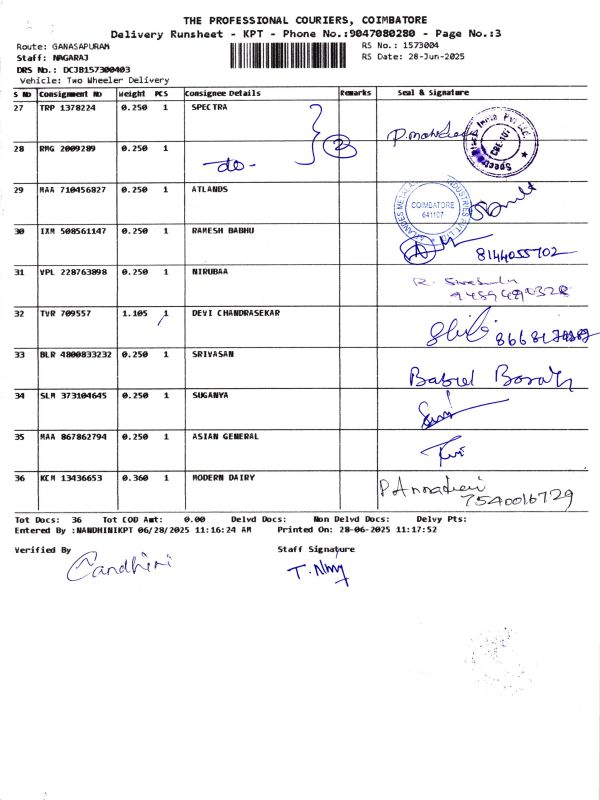 THE PROFESSIONAL COURIERS, COIMBATORE
Delivery Runsheet - KPT - Phone No.:9047080280 - Page No.:3
Route: GANASAPURAM
RS No.: 1573004
Staff: NAGARAJ
RS Date: 28-Jun-2025
DRS No.: DCJB157300403
Vehicle: Two Wheeler Delivery
S No Consignment No Weight PCS Consignee Details Remarks Seal & Signature
27 TRP 1378224 0.250 1 SPECTRA
28 RMG 2009289 0.250 1 -do- 2
29 MAA 710456827 0.250 1 ATLANDS
COIMBATORE
641107
30 IXM 508561147 0.250 1 RAMESH BABHU
8144055702
31 VPL 228763898 0.250 1 NIRUBAA
32 TVR 709557 1.105 1 DEVI CHANDRASEKAR
33 BLR 4800833232 0.250 1 SRIVASAN
34 SLM 373104645 0.250 1 SUGANYA
35 MAA 867862794 0.250 1 ASIAN GENERAL
36 KCM 13436653 0.360 1 MODERN DAIRY
7540016729
Tot Docs: 36 Tot COD Amt: 0.00 Delvd Docs: Non Delvd Docs: Delvy Pts:
Entered By :NANDHINIKPT 06/28/2025 11:16:24 AM Printed On: 28-06-2025 11:17:52
Verified By Staff Signature